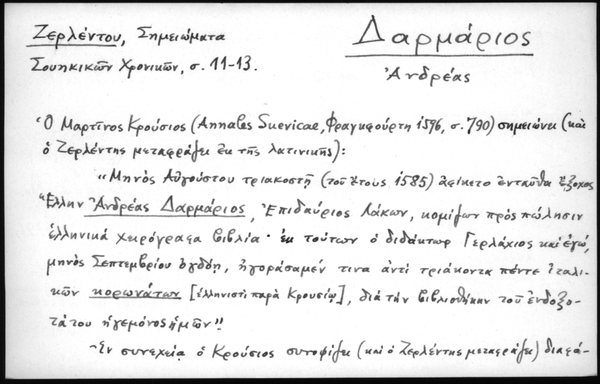 Ζερλέντου, Σημειώματα
Σουηκικῶν Χρονικῶν, σ. 11-13.
Δαρμάριος
Ἀνδρέας
Ὁ Μαρτῖνος Κρούσιος (Annales Suevicae, Φραγκφούρτη 1596, σ. 790) σημειώνει (καὶ
ὁ Ζερλέντης μεταφράζει ἐκ τῆς λατινικῆς):
"Μηνὸς Αὐγούστου τριακοστῇ (τοῦ ἔτους 1585) ἀφίκετο ἐνταῦθα ἔξοχος
Ἕλλην Ἀνδρέας Δαρμάριος, Ἐπιδαύριος Λάκων, κομίζων πρὸς πώλησιν
ἑλληνικὰ χειρόγραφα βιβλία· ἐκ τούτων ὁ διδάκτωρ Γερλάχιος καὶ ἐγώ,
μηνὸς Σεπτεμβρίου ὀγδόῃ, ἠγοράσαμέν τινα ἀντὶ τριάκοντα πέντε ἰταλι-
κῶν κορωνάτων [ἑλληνιστὶ παρὰ Κρουσίῳ], διὰ τὴν βιβλιοθήκην τοῦ ἐνδοξο-
τάτου ἡγεμόνος ἡμῶν".
Ἐν συνεχείᾳ ὁ Κρούσιος συνοψίζει (καὶ ὁ Ζερλέντης μεταφράζει) διαφά-